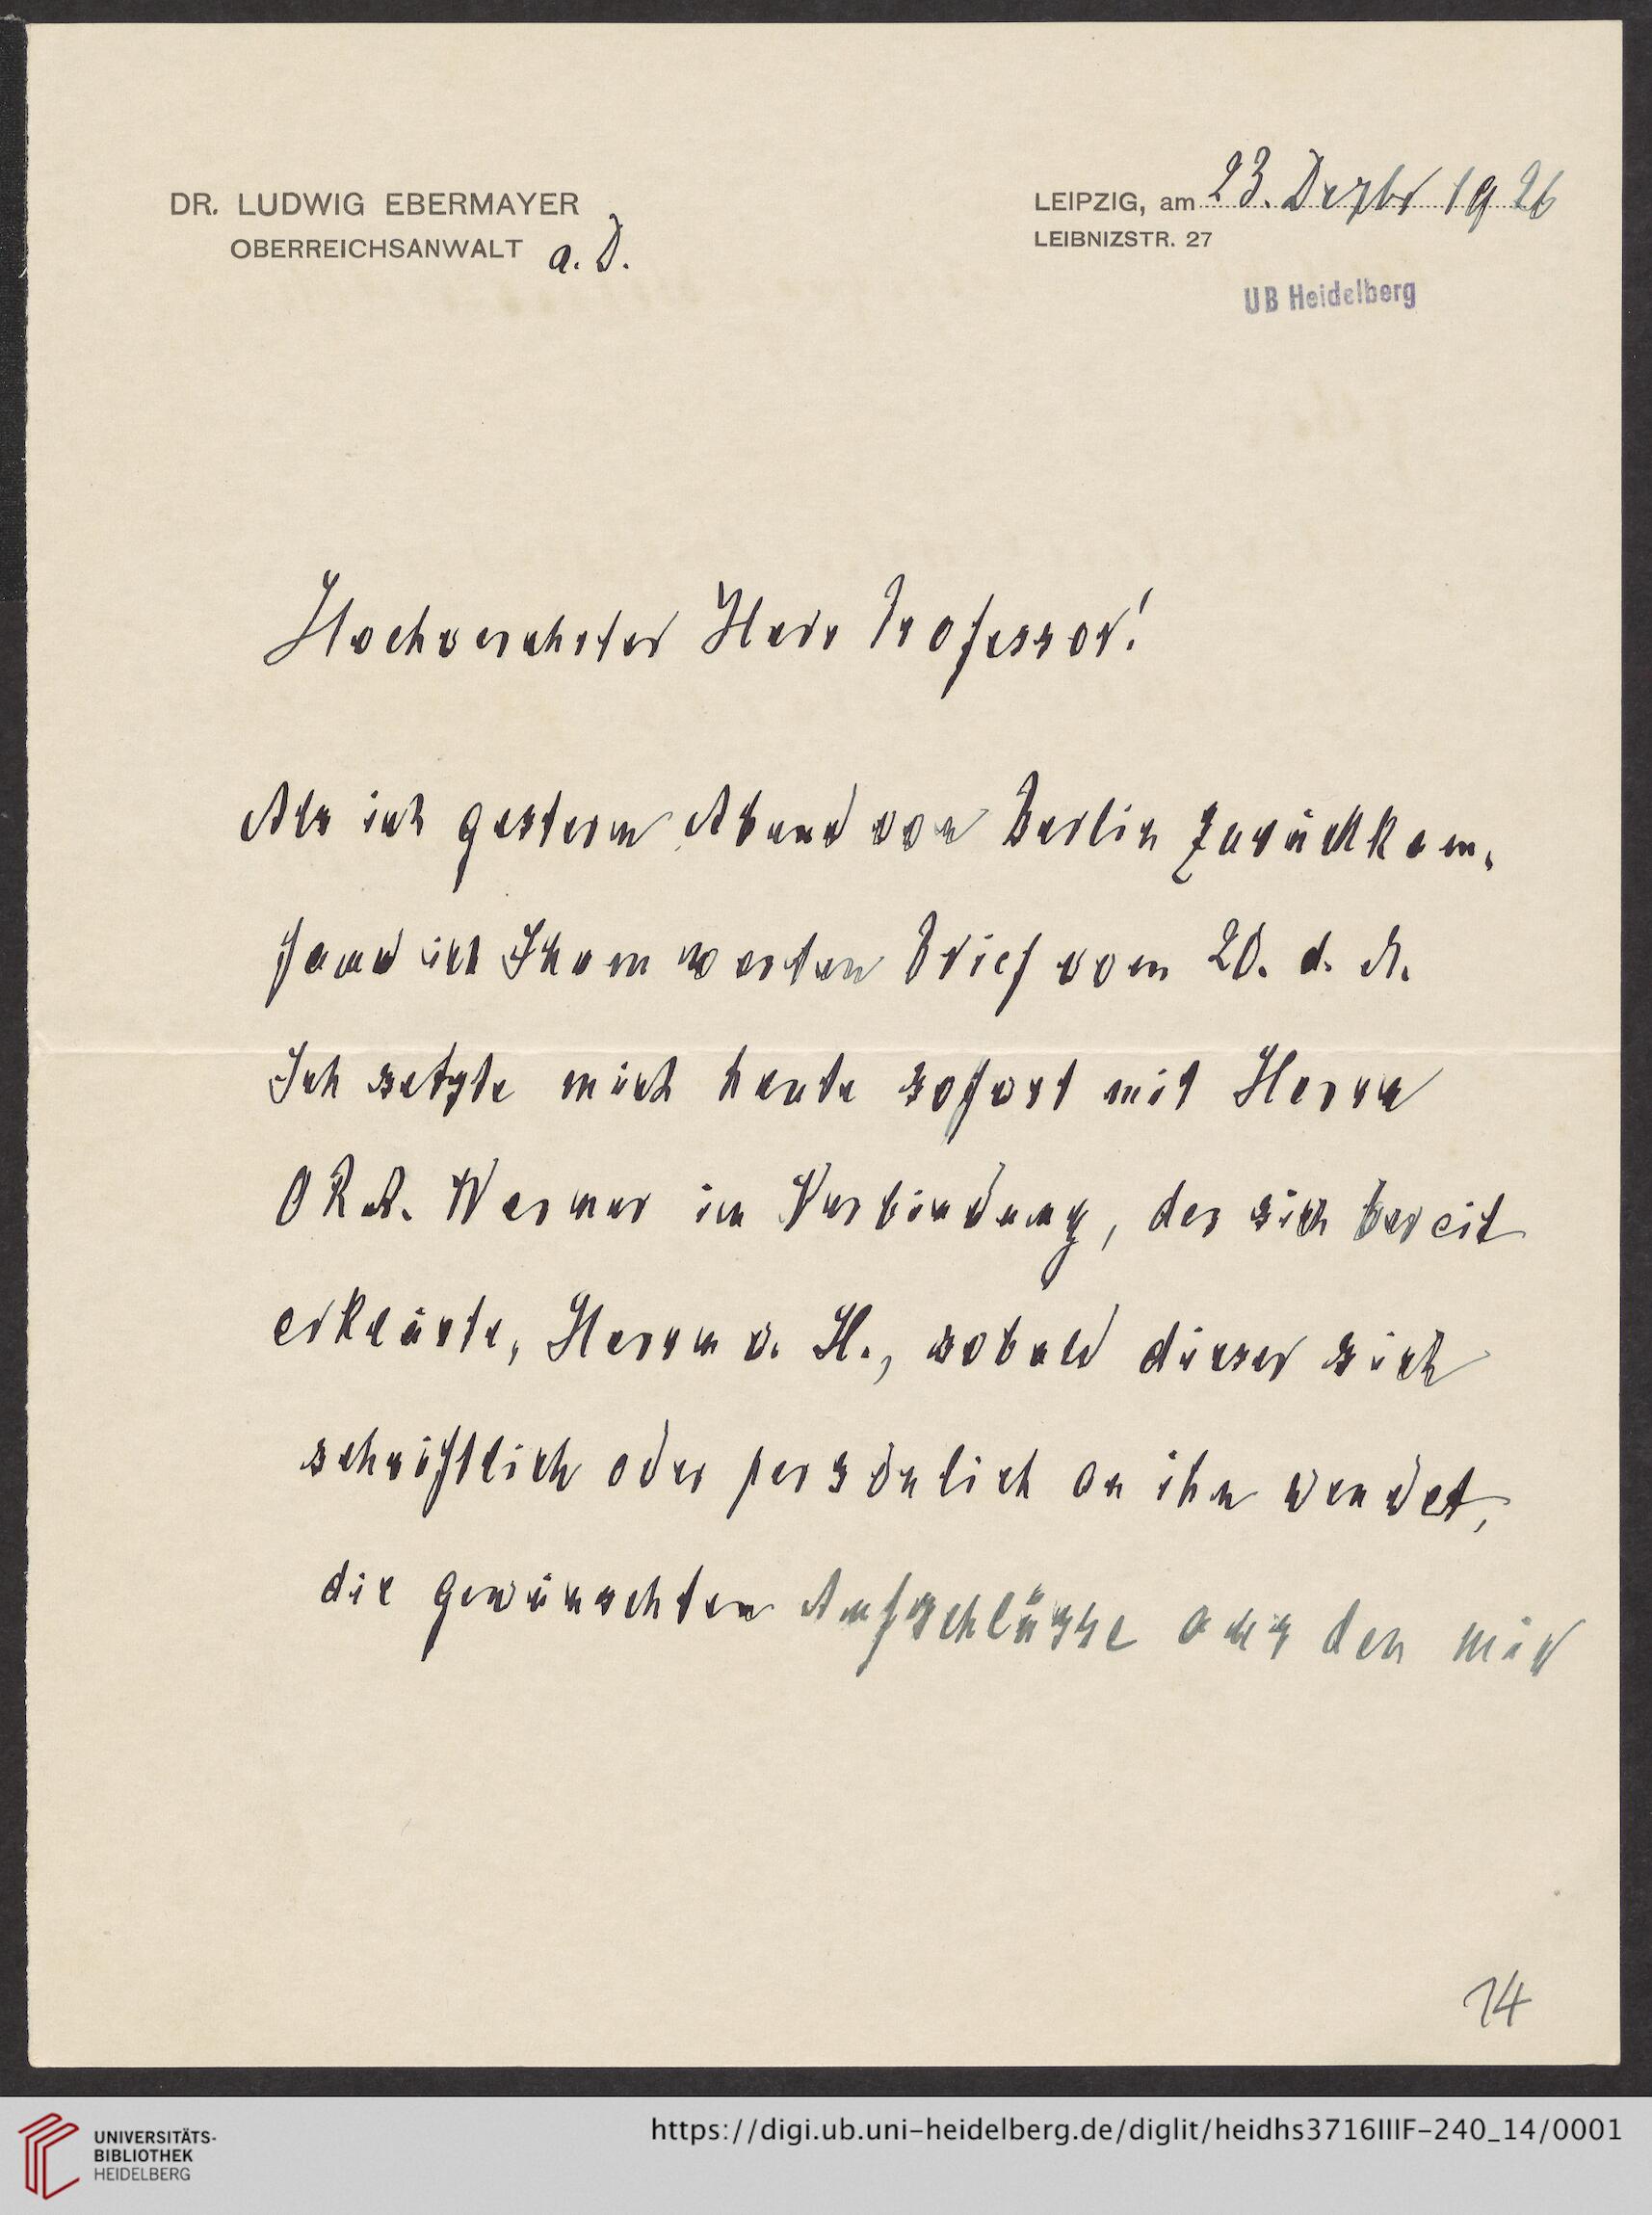 DR. LUDWIG EBERMAYER
OBERREICHSANWALT a. D.
LEIPZIG, am 23. Dezbr 1926
LEIBNIZSTR. 27
UB Heidelberg
Hochverehrter Herr Professor!
Als ich gestern Abend von Berlin zurückkam,
fand ich Ihren werten Brief vom 20. d. M.
Ich setzte mich heute sofort mit Herrn
ORA. Werner in Verbindung, der sich bereit
erklärte, Herrn v. H., sobald dieser sich
schriftlich oder persönlich an ihn wendet,
die gewünschten Aufschlüsse aus den mir
14
UNIVERSITÄTS-
BIBLIOTHEK
HEIDELBERG
https://digi.ub.uni-heidelberg.de/diglit/heidhs3716IIIF-240_14/0001